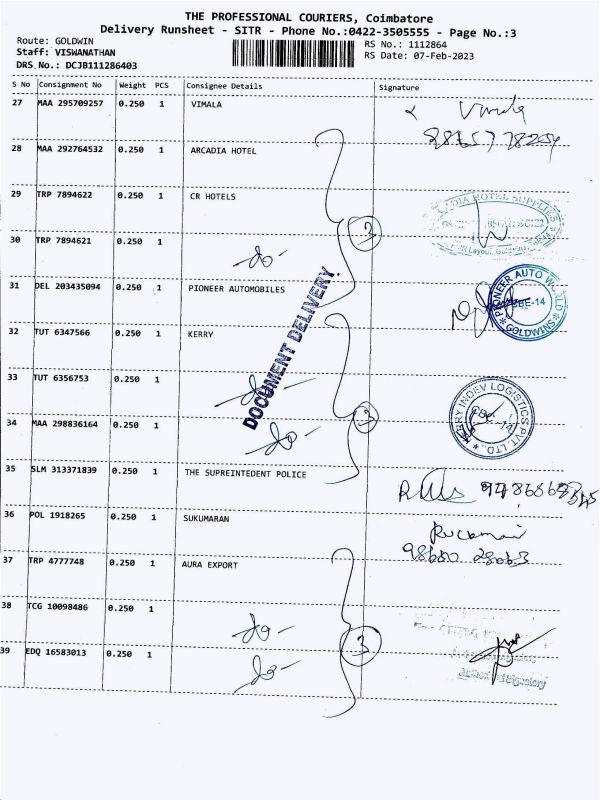 THE PROFESSIONAL COURIERS, Coimbatore
Delivery Runsheet - SITR - Phone No.:0422-3505555 - Page No.:3
Route: GOLDWIN
RS No.: 1112864
Staff: VISWANATHAN
RS Date: 07-Feb-2023
DRS No.: DCJB111286403
S No Consignment No Weight PCS Consignee Details Signature
27 MAA 295709257 0.250 1 VIMALA Vimala
28 MAA 292764532 0.250 1 ARCADIA HOTEL
29 TRP 7894622 0.250 1 CR HOTELS
HOTEL SUPPLIES
3
30 TRP 7894621 0.250 1 do-
31 DEL 203435094 0.250 1 PIONEER AUTOMOBILES
PIONEER AUTO WORLD
SBE-14
GOLDWINS
32 TUT 6347566 0.250 1 KERRY
DOCUMENT DELIVERY
33 TUT 6356753 0.250 1 do-
KERRY INDEV LOGISTICS PVT. LTD.
3
34 MAA 298836164 0.250 1 do-
35 SLM 313371839 0.250 1 THE SUPREINTEDENT POLICE
36 POL 1918265 0.250 1 SUKUMARAN
37 TRP 4777748 0.250 1 AURA EXPORT
38 TCG 10098486 0.250 1 do-
3
39 EDQ 16583013 0.250 1 do-
Authorised Signatory